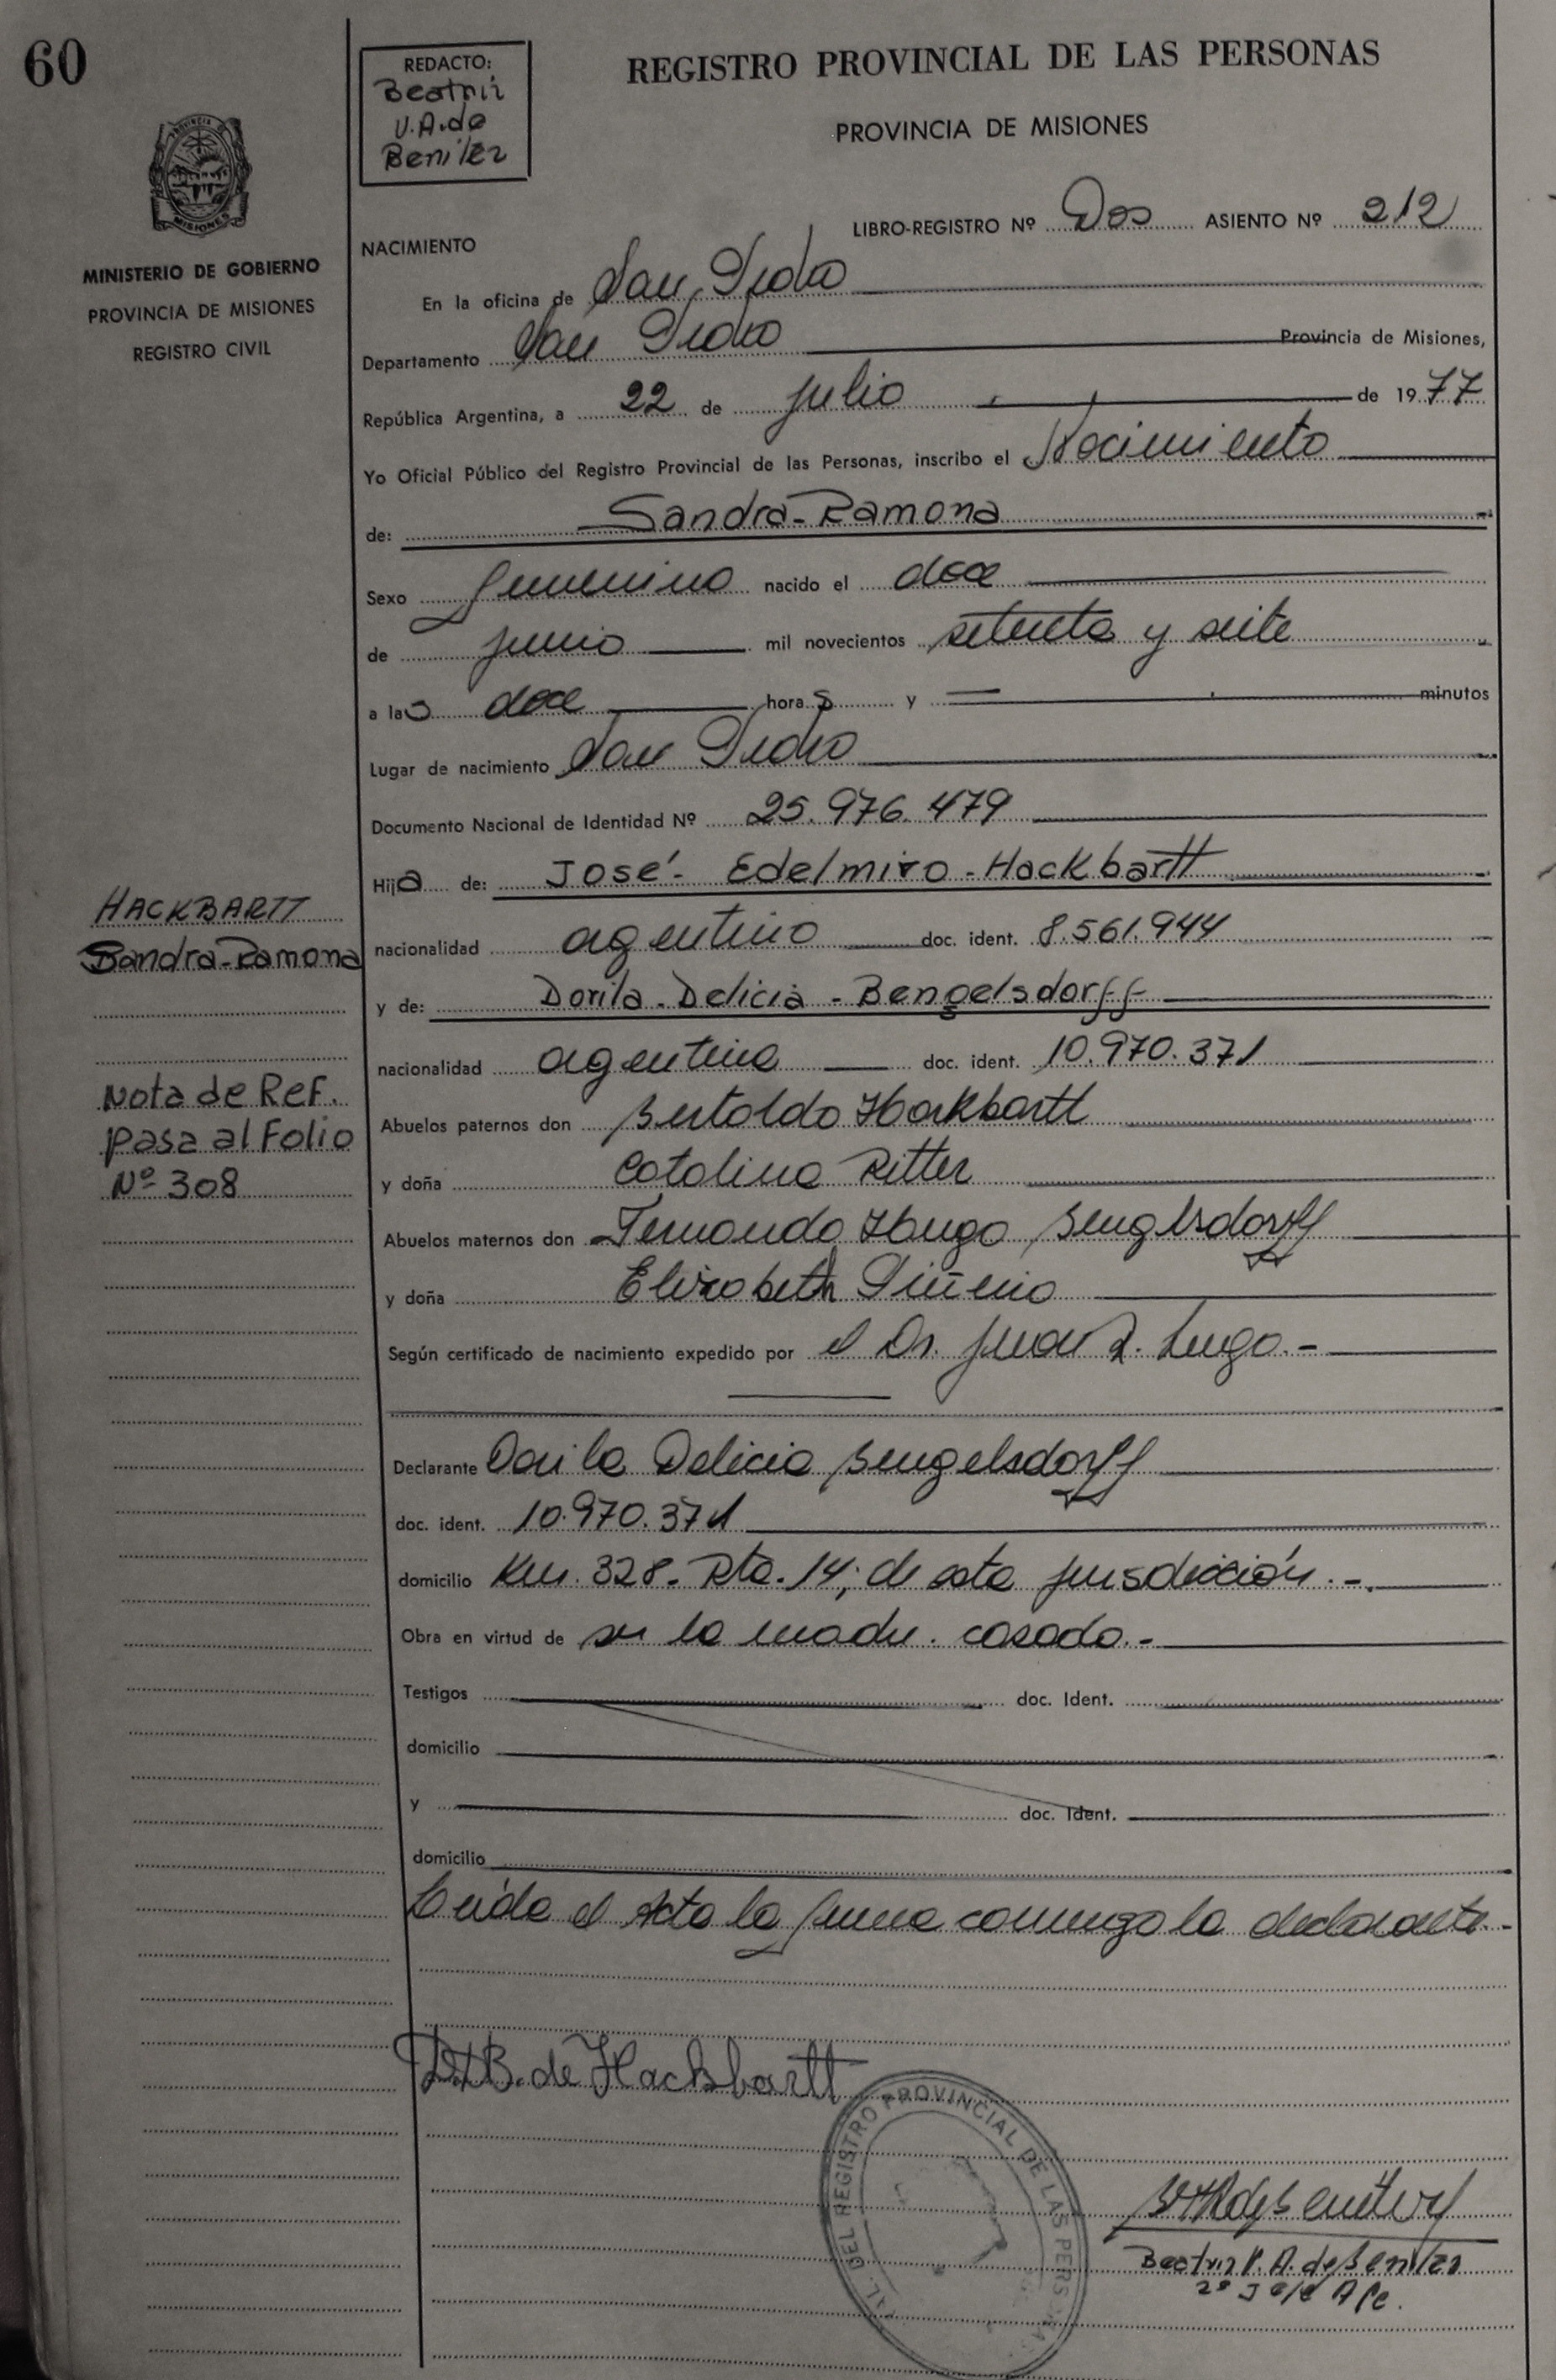 60
REDACTO:
Beatriz
V. A. de
Benitez
REGISTRO PROVINCIAL DE LAS PERSONAS
PROVINCIA DE MISIONES
PROVINCIA
MISIONES
MINISTERIO DE GOBIERNO
PROVINCIA DE MISIONES
REGISTRO CIVIL
LIBRO-REGISTRO Nº Dos ASIENTO Nº 212
NACIMIENTO
En la oficina de San Pedro
Departamento San Pedro Provincia de Misiones,
República Argentina, a 22 de julio de 1977
Yo Oficial Público del Registro Provincial de las Personas, inscribo el Nacimiento
de: Sandra-Ramona
Sexo femenino nacido el doce
de junio mil novecientos setenta y siete
a las doce horas y — minutos
Lugar de nacimiento San Pedro
Documento Nacional de Identidad Nº 25.976.479
Hija de: José- Edelmiro-Hackbartt
nacionalidad argentino doc. ident. 8.561.944
y de: Dorila-Delicia-Bengelsdorff
nacionalidad argentina doc. ident. 10.970.371
Abuelos paternos don Bertoldo Hackbartt
y doña Catalina Ritter
Abuelos maternos don Fernando Hugo Bengelsdorff
y doña Elizabeth Piñeiro
Según certificado de nacimiento expedido por el Dr. Juan R. Lugo.-
Declarante Dorila Delicia Bengelsdorff
doc. ident. 10.970.371
domicilio Km. 328- Rta. 14; de esta jurisdicción.-
Obra en virtud de ser la madre. casada.-
Testigos doc. Ident.
domicilio
y doc. Ident.
domicilio
Leída el Acta la firma conmigo la declarante.-
HACKBARTT
Sandra-Ramona
Nota de Ref.
pasa al Folio
Nº 308
D.D.B. de Hackbartt
DEL REGISTRO PROVINCIAL DE LAS PERS
Beatriz V. A. de Benitez
2º Jefe